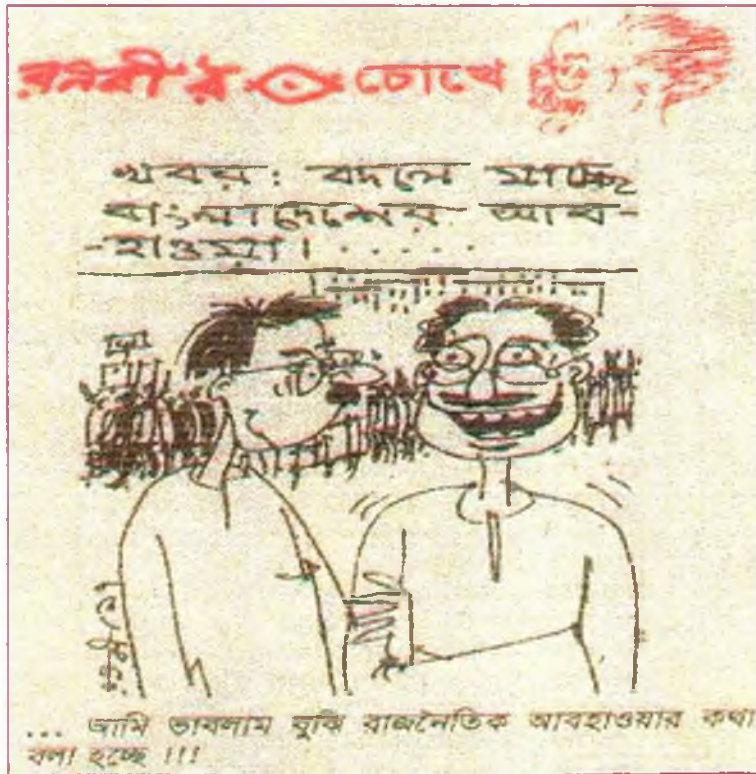 রনবী'র চোখে
খবর: বদলে যাচ্ছে
বাংলাদেশের আব-
-হাওয়া। . . . . .
রনবী
... আমি ভাবলাম বুঝি রাজনৈতিক আবহাওয়ার কথা
বলা হচ্ছে !!!